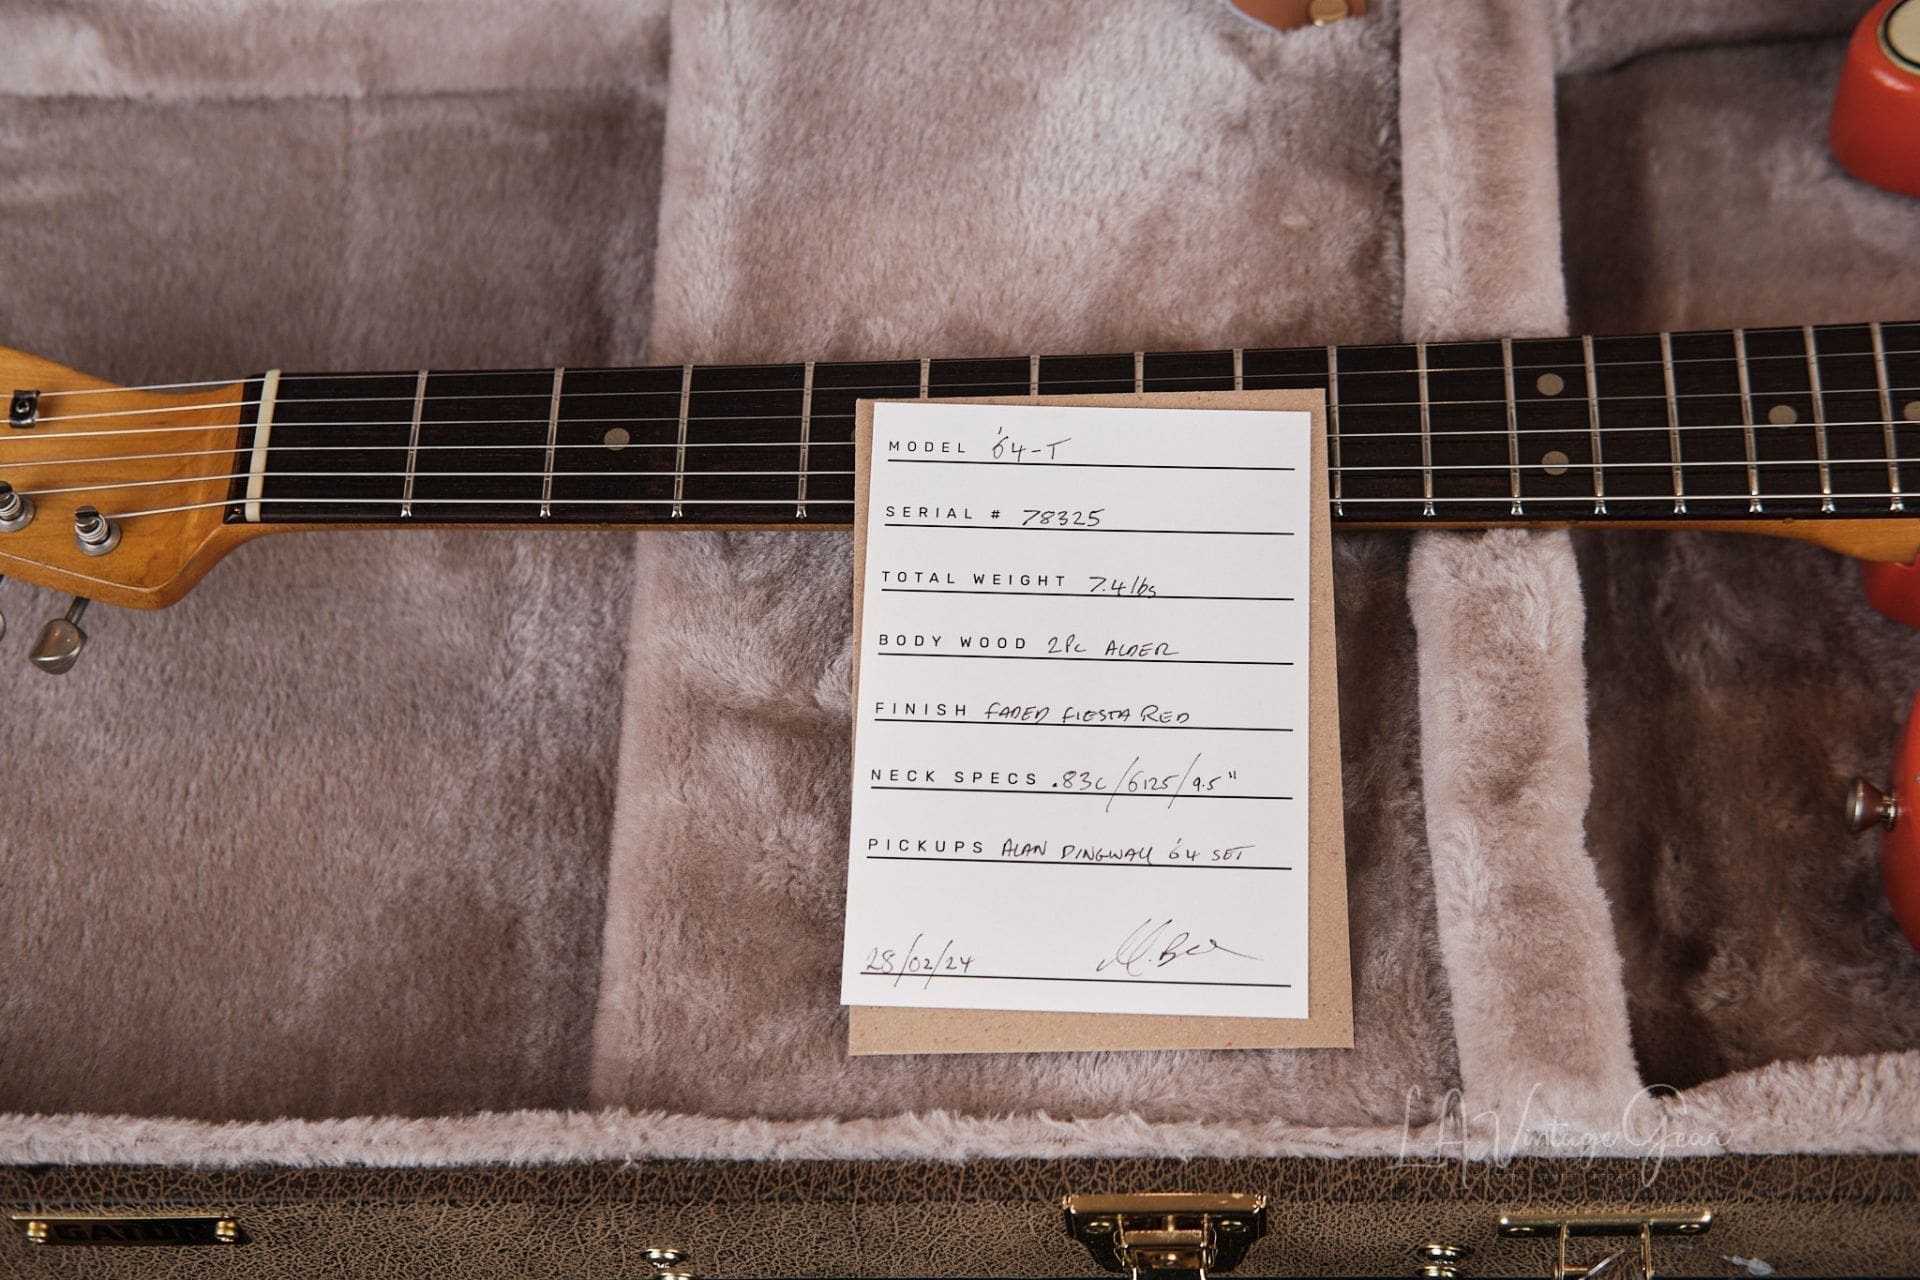 MODEL '64-T
SERIAL # 78325
TOTAL WEIGHT 7.4lbs
BODY WOOD 2PC ALDER
FINISH FADED FIESTA RED
NECK SPECS .83C/6125/9.5"
PICKUPS ALAN DINGWALL 64 SET
28/02/24
LA Vintage Gear
GATOR